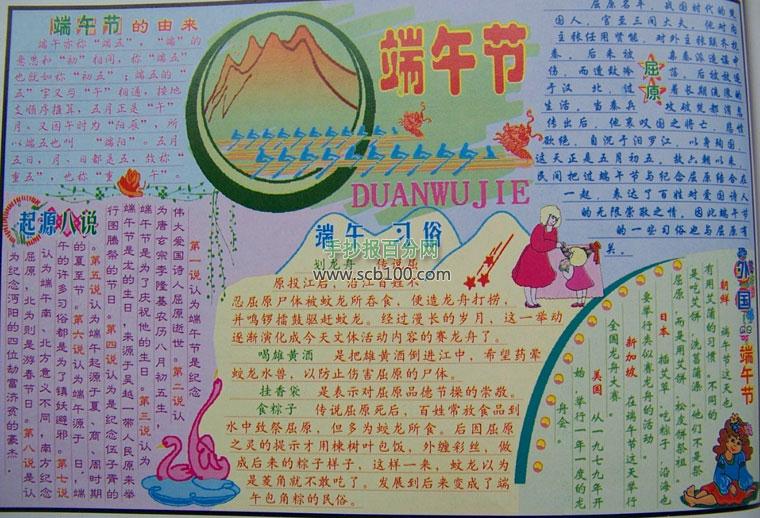 端午节的由来
端午亦称“端五”，“端”的
意思和“初”相同，称“端五”
也就如称“初五”；端五的“
五”字又与“午”相通，按地
支顺序推算，五月正是“午”
月。又因午时为“阳辰”，所
以端五也叫“端阳”。五月
五日，月、日都是五，故称“重
重五”，也称“重午”。
端午节
DUANWUJIE
屈原
屈原名平，战国时代的楚
国人，官至三闾大夫，他对内
主张任用贤能，对外主张联齐抗
秦。后来被
于汉北，
生活，当秦兵
传出后，他哀叹国之将亡，悲愤
欲绝，自沉于汨罗江，以身殉国，
这天正是五月初五。故六朝以来，
民间把过端午节与纪念屈原结合在
一起，表达了百姓对爱国诗人
的无限崇敬之情，因此端午节
的一些习俗也与屈原有
关。
起源八说
第一说认为端午节是纪念
伟大爱国诗人屈原逝世。第二说认
为唐玄宗李隆基农历八月初五生，
端午节是为了庆祝他的生日。第三说认为
端午节是龙的生日，来源于吴越一带人民原来举
行图腾祭的节日。第四说认为是纪念伍子胥的
。第五说认为端午起源于夏、商、周时期
的夏至节。第六说认为端午源于日，端
午的许多习俗都是为了镇妖避邪。第七说
认为端午南、北方意义不同，南方纪念
屈原，北为则是游春节日。第八说是认
为纪念沔阳的四位劫富济贫的豪杰。
端午习俗
手抄报百分网
www.scb100.com
划龙舟 传说屈
原投江后，沿江百姓不
忍屈原尸体被蛟龙所吞食，便造龙舟打捞，
并鸣锣擂鼓驱赶蛟龙。经过漫长的岁月，这一举动
逐渐演化成今天文体活动内容的赛龙舟了。
喝雄黄酒 是把雄黄酒倒进江中，希望药晕
蛟龙水兽，以防止伤害屈原的尸体。
挂香袋 是表示对屈原品德节操的崇敬。
食粽子 传说屈原死后，百姓常放食品到
水中致祭屈原，但多为蛟龙所食。后因屈原
之灵的提示才用楝树叶包饭，外缠彩丝，做
成后来的粽子样子，这样一来，蛟龙以为
是菱角就不敢吃了。发展到后来变成了端
午包角粽的民俗。
外国端午节
朝鲜 端午节这天也
有用艾蒲的习惯，不同的
是吃艾饼、洗菖蒲汤，他们不是祭
屈原，而是用艾饼、松皮饼祭祖。
日本 插艾草、吃粽子，沿海也
要举行类似赛龙舟的活动。
新加坡 在端午节这天举行
全国龙舟大赛。
美国 从一九七九年开
始，举行一年一度的龙
舟会。